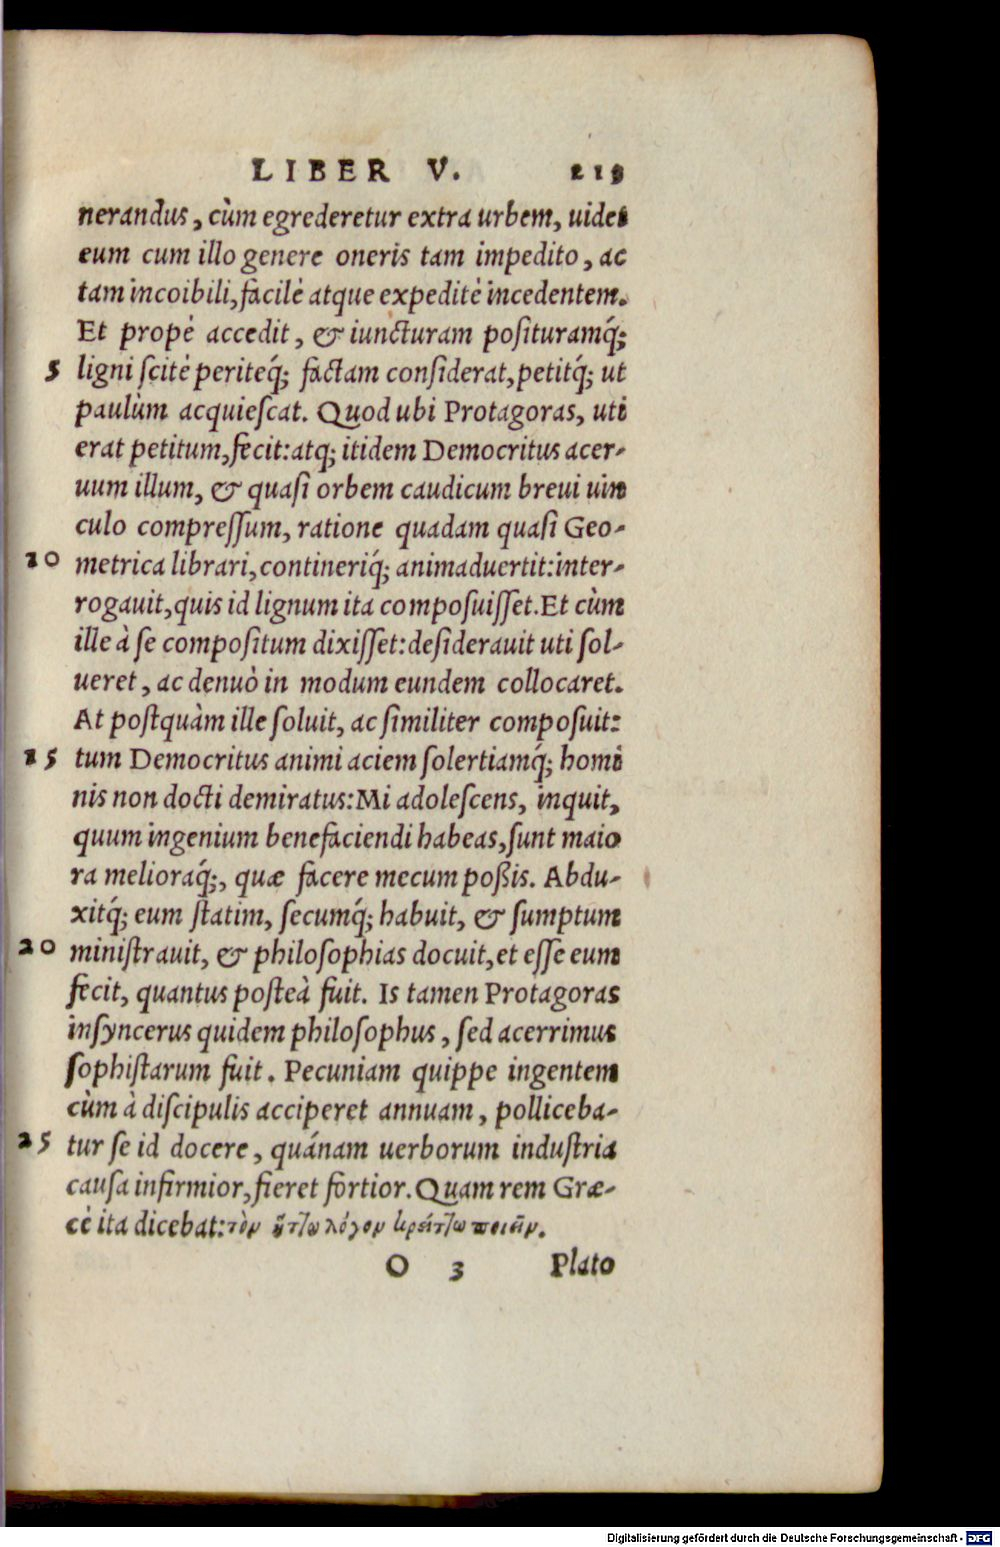 LIBER V. 213
nerandus, cùm egrederetur extra urbem, uidet
eum cum illo genere oneris tam impedito, ac
tam incoibili, facilè atque expeditè incedentem.
Et propè accedit, & iuncturam posituramq́;
5 ligni scitè periteq́; factam considerat, petitq́; ut
paulùm acquiescat. Quod ubi Protagoras, uti
erat petitum, fecit: atq; itidem Democritus acer-
uum illum, & quasi orbem caudicum breui uin
culo compressum, ratione quadam quasi Geo-
10 metrica librari, contineriq́; animaduertit: inter-
rogauit, quis id lignum ita composuisset. Et cùm
ille à se compositum dixisset: desiderauit uti sol-
ueret, ac denuò in modum eundem collocaret.
At postquàm ille soluit, ac similiter composuit:
15 tum Democritus animi aciem solertiamq́; homi
nis non docti demiratus: Mi adolescens, inquit,
quum ingenium benefaciendi habeas, sunt maio
ra melioraq́;, quæ facere mecum poßis. Abdu-
xitq́; eum statim, secumq́; habuit, & sumptum
20 ministrauit, & philosophias docuit, et esse eum
fecit, quantus posteà fuit. Is tamen Protagoras
insyncerus quidem philosophus, sed acerrimus
sophistarum fuit. Pecuniam quippe ingentem
cùm à discipulis acciperet annuam, polliceba-
25 tur se id docere, quánam uerborum industria
causa infirmior, fieret fortior. Quam rem Græ-
cè ita dicebat: τὸν ἥττω λόγον κρείττω ποιεῖν.
O 3 Plato
Digitalisierung gefördert durch die Deutsche Forschungsgemeinschaft - DFG